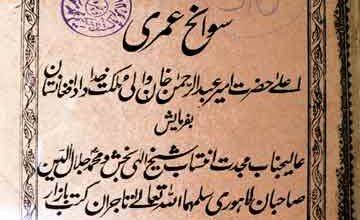 سوانح عمری
اعلےٰ حضرت امیر عبدالرحمٰن خان والی مملکت خداداد افغانستان
بفرمایش
عالیجناب مجدت انتساب شیخ الٰہی بخش و محمد جلال الدین
صاحبان لاہوری سلمہما اللہ تعالےٰ تاجران کتب بازار